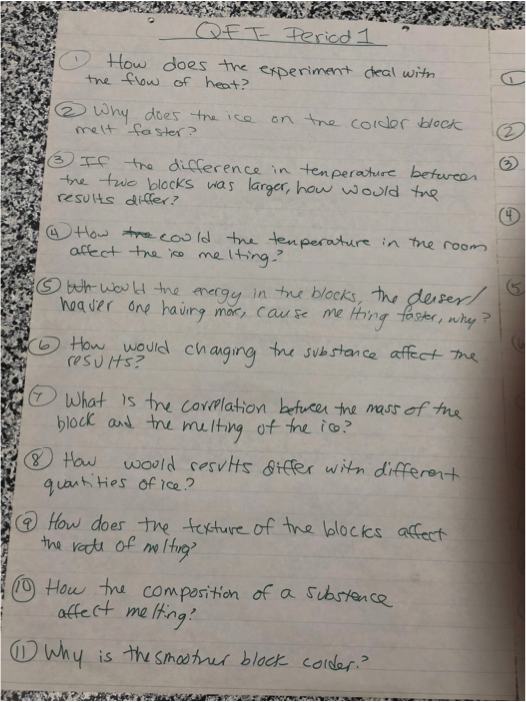 QFT - Period 1
① How does the experiment deal with
the flow of heat?
② Why does the ice on the colder block
melt faster?
③ If the difference in temperature between
the two blocks was larger, how would the
results differ?
④ How could the temperature in the room
affect the ice melting?
⑤ would the energy in the blocks, the denser/
heavier one having more, cause melting faster, why?
⑥ How would changing the substance affect the
results?
⑦ What is the correlation between the mass of the
block and the melting of the ice?
⑧ How would results differ with different
quantities of ice?
⑨ How does the texture of the blocks affect
the rate of melting?
⑩ How the composition of a substance
affect melting?
⑪ Why is the smoother block colder?
①
②
③
④
⑤